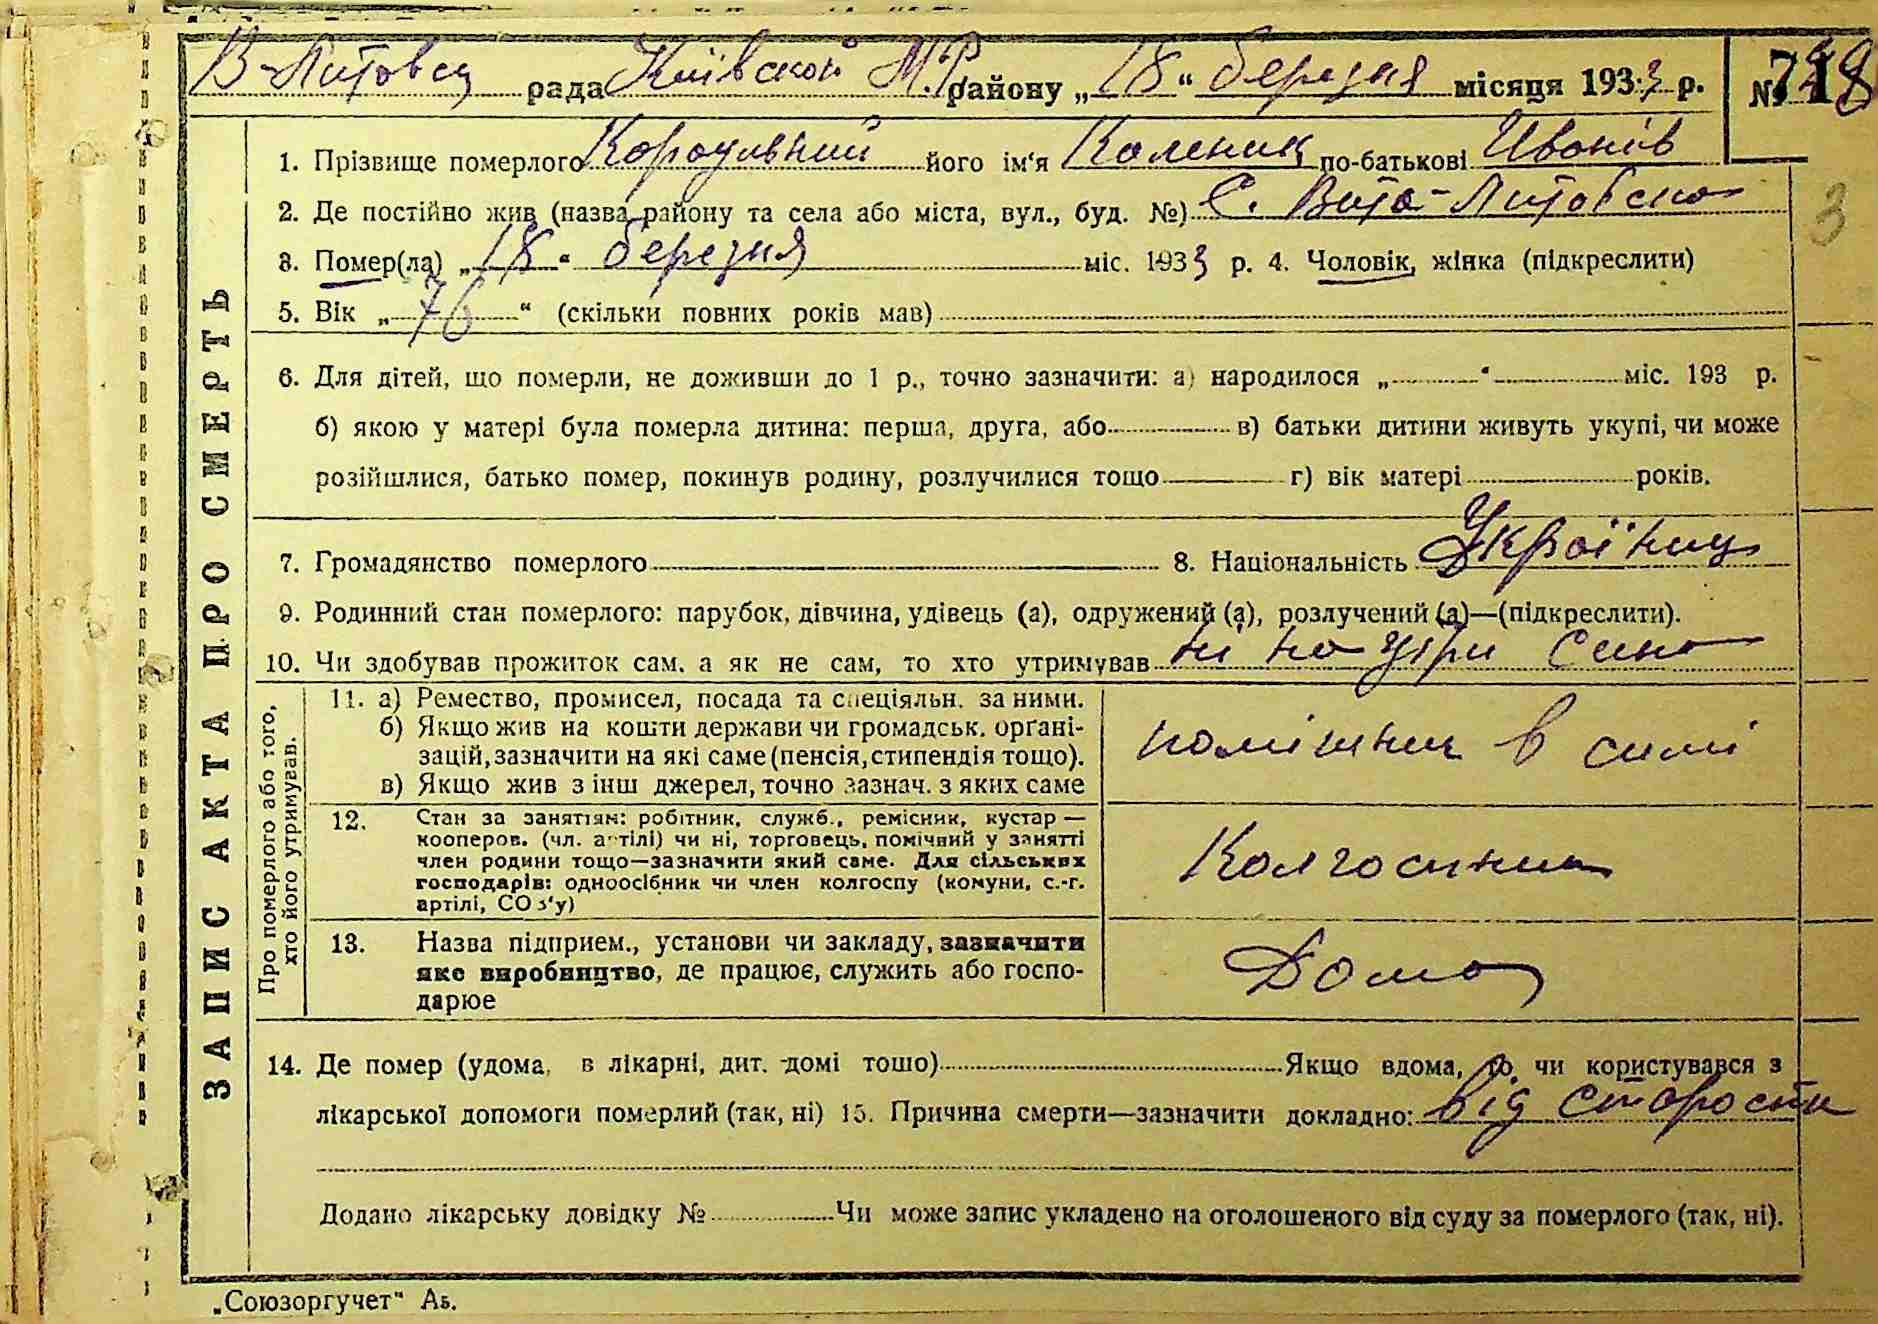 В-Литовсц рада Київской М.Р. району „18“ березня місяця 1933 р. №
1. Прізвище померлого його ім'я Каленик по-батькові Иванів
2. Де постійно жив (назва району та села або міста, вул., буд. №) С. Вита-Литовска
3
3. Помер(ла) „18“ березня міс. 1933 р. 4. Чоловік, жінка (підкреслити)
5. Вік „76“ (скільки повних років мав)
6. Для дітей, що померли, не доживши до 1 р., точно зазначити: а) народилося „ “ міс. 193 р.
б) якою у матері була померла дитина: перша, друга, або в) батьки дитини живуть укупі, чи може
розійшлися, батько помер, покинув родину, розлучилися тощо г) вік матері років.
7. Громадянство померлого 8. Національність Українец
9. Родинний стан померлого: парубок, дівчина, удівець (а), одружений (а), розлучений (а)—(підкреслити).
10. Чи здобував прожиток сам. а як не сам, то хто утримував ні на сина
ЗАПИС АКТА ПРО СМЕРТЬ
Про померлого або того,
хто його утримував.
11. а) Ремество, промисел, посада та спеціяльн. за ними.
б) Якщо жив на кошти держави чи громадськ. орґані-
зацій, зазначити на які саме (пенсія, стипендія тощо).
в) Якщо жив з інш джерел, точно зазнач. з яких саме
помішник в симї
12. Стан за заняттям: робітник, служб., ремісник, кустар—
кооперов. (чл. артілі) чи ні, торговець, помічний у занятті
член родини тощо—зазначити який саме. Для сільських
господарів: одноосібник чи член колгоспу (комуни, с.-г.
артілі, СОЗ'у)
Колгоспник
13. Назва підприєм., установи чи закладу, зазначити
яке виробництво, де працює, служить або госпо-
дарює
Дома
14. Де помер (удома, в лікарні, дит. домі тощо) Якщо вдома, то чи користувався з
лікарської допомоги померлий (так, ні) 15. Причина смерти—зазначити докладно: від старости
Додано лікарську довідку № Чи може запис укладено на оголошеного від суду за померлого (так, ні).
„Союзоргучет“ Аб.